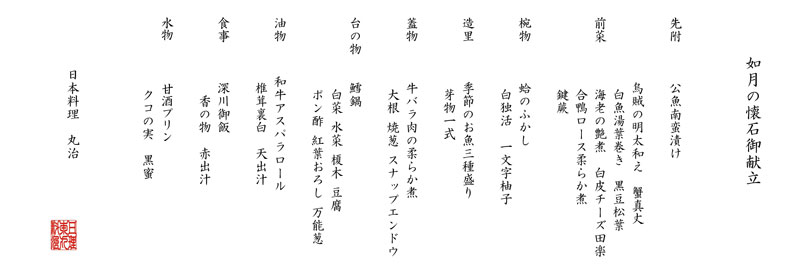 如月の懐石御献立
先附　公魚南蛮漬け
前菜　烏賊の明太和え　蟹真丈
白魚湯葉巻き　黒豆松葉
海老の艶煮　白皮チーズ田楽
合鴨ロース柔らか煮
鍵蕨
椀物　蛤のふかし
白独活　一文字柚子
造里　季節のお魚三種盛り
芽物一式
蓋物　牛バラ肉の柔らか煮
大根　焼葱　スナップエンドウ
台の物　鱈鍋
白菜　水菜　榎木　豆腐
ポン酢　紅葉おろし　万能葱
油物　和牛アスパラロール
椎茸裏白　天出汁
食事　深川御飯
香の物　赤出汁
水物　甘酒プリン
クコの実　黒蜜
日本料理　丸治